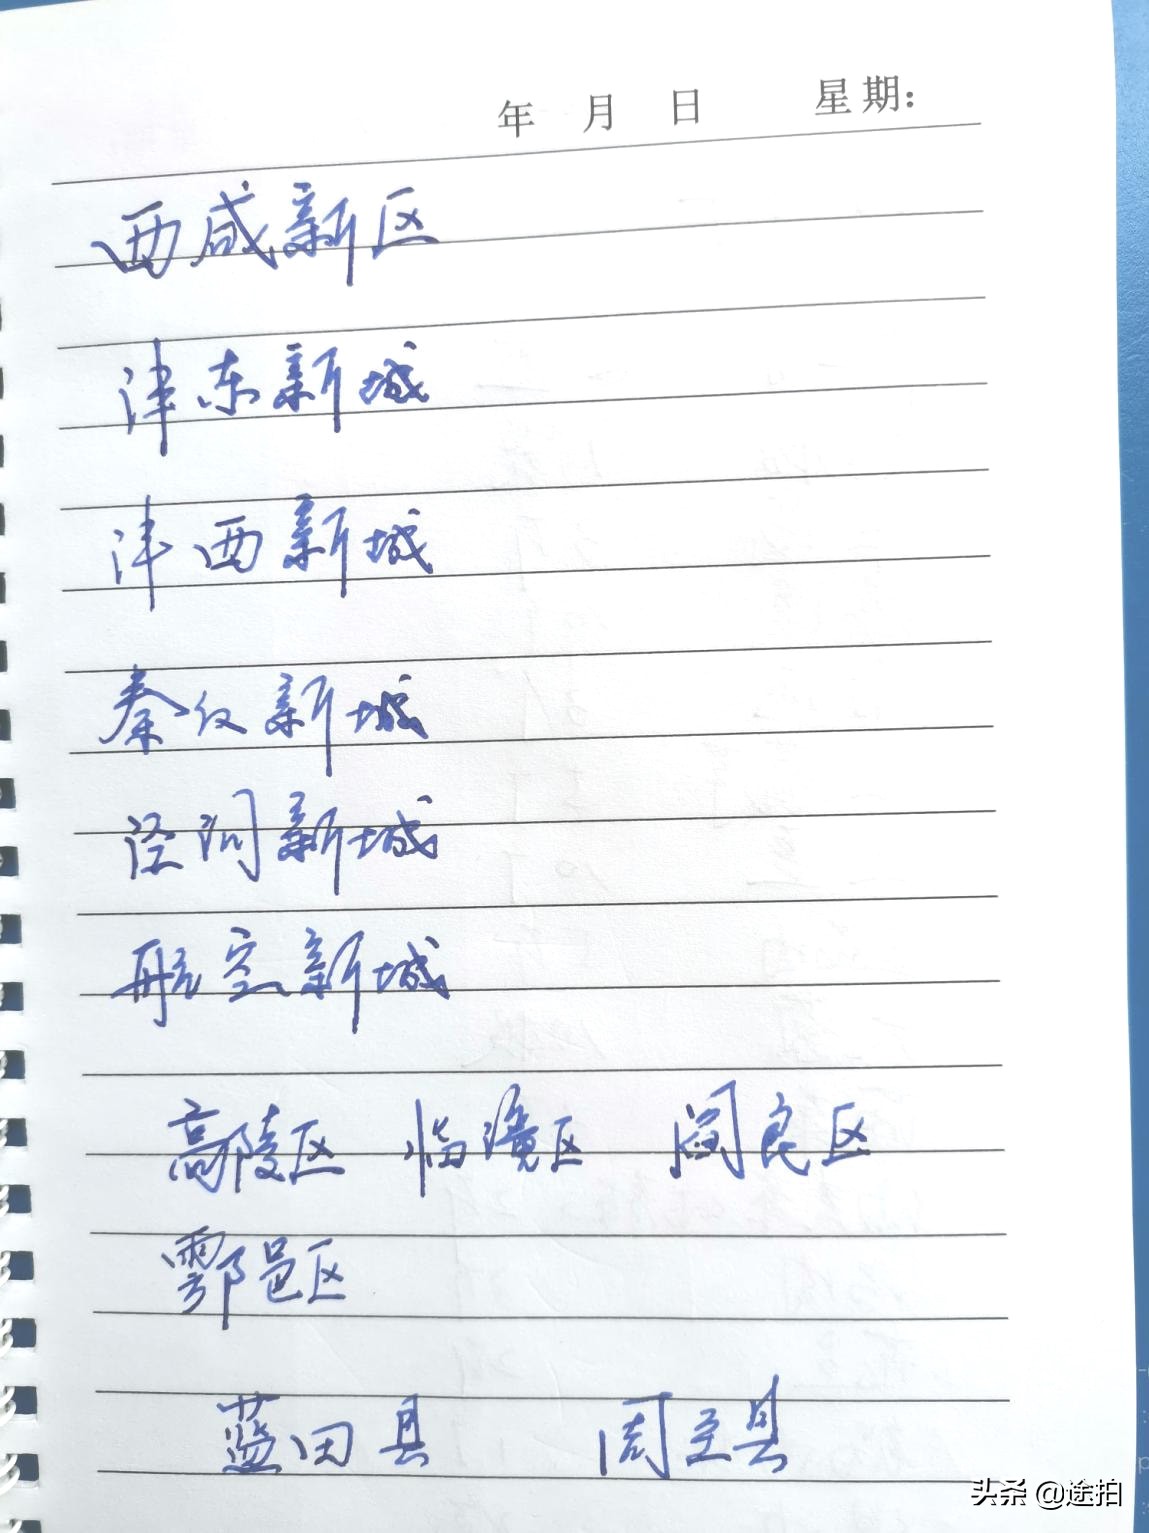 年 月 日 星期:
西咸新区
津东新城
沣西新城
秦汉新城
泾河新城
航空新城
高陵区 临潼区 阎良区
鄠邑区
蓝田县 周至县
头条 @途拍